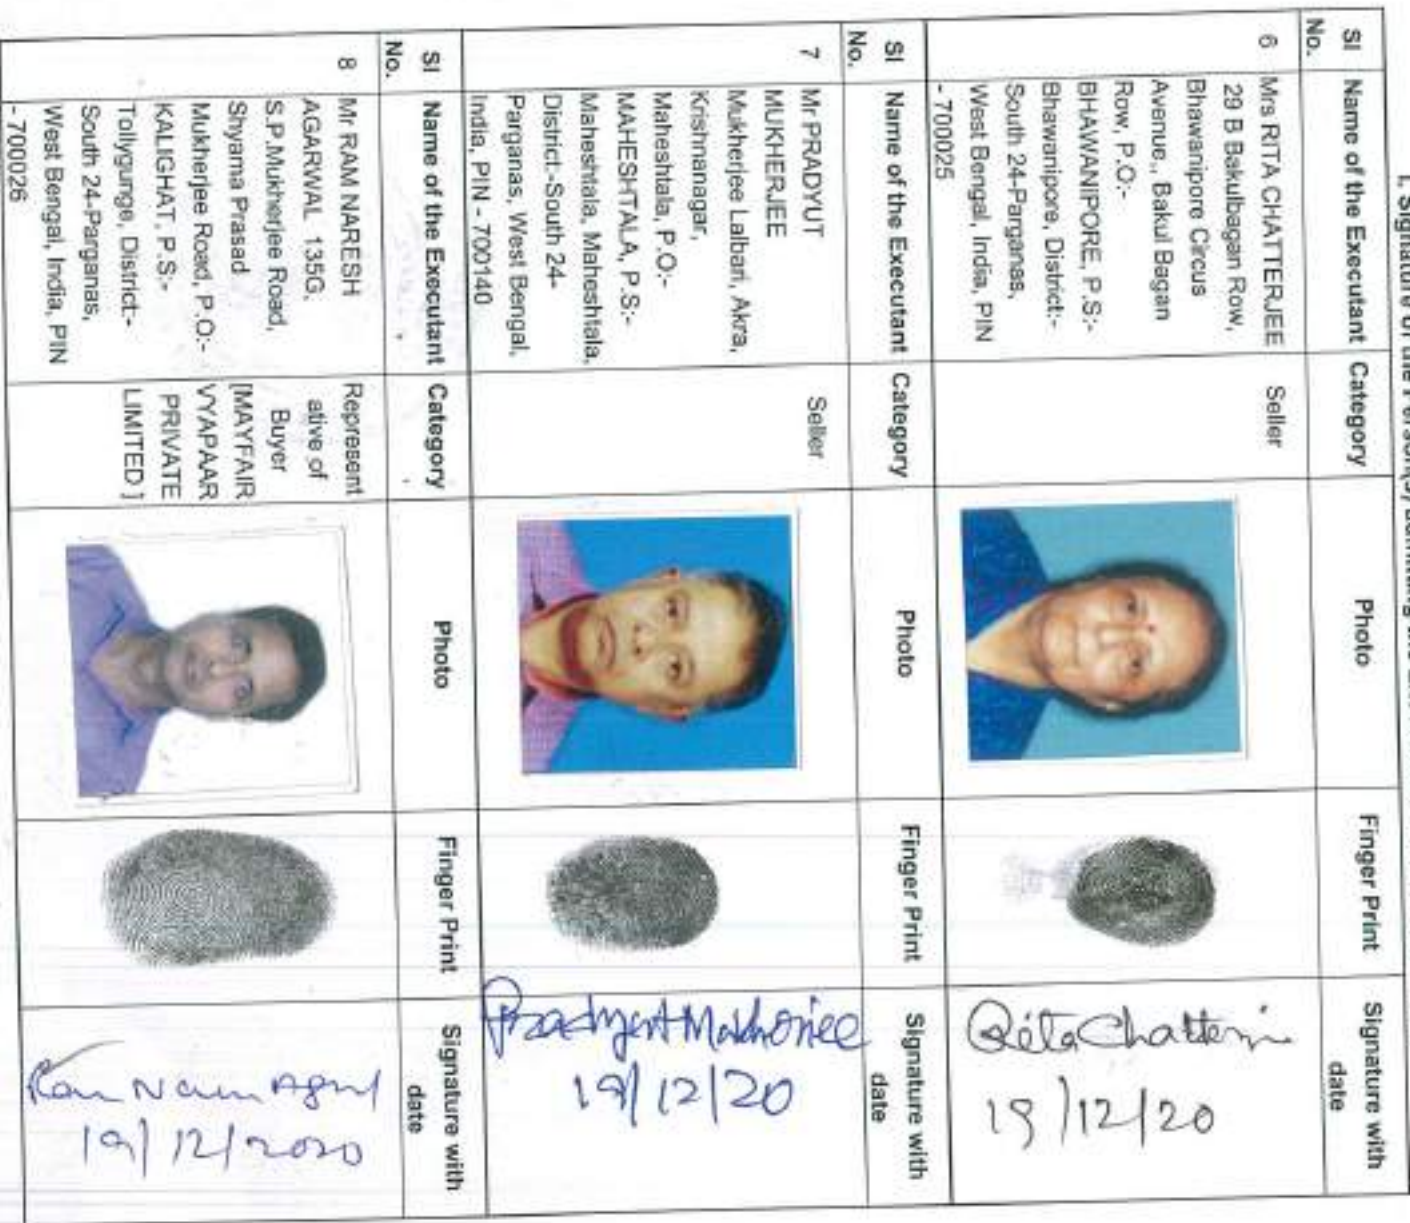 I. Signature of the Person(s) admitting the
Sl No. Name of the Executant Category Photo Finger Print Signature with date
6 Mrs RITA CHATTERJEE Seller
29 B Bakulbagan Row,
Bhawanipore Circus
Avenue,, Bakul Bagan
Row, P.O:-
BHAWANIPORE, P.S:-
Bhawanipore, District:-
South 24-Parganas,
West Bengal, India, PIN
- 700025
Rita Chatterji
19/12/20
Sl No. Name of the Executant Category Photo Finger Print Signature with date
7 Mr PRADYUT Seller
MUKHERJEE
Mukherjee Lalbari, Akra,
Krishnanagar,
Maheshtala, P.O:-
MAHESHTALA, P.S:-
Maheshtala, Maheshtala,
District:-South 24-
Parganas, West Bengal,
India, PIN - 700140
Pradyut Mukherjee
19/12/20
Sl No. Name of the Executant Category Photo Finger Print Signature with date
8 Mr RAM NARESH
AGARWAL 135G,
S.P.Mukherjee Road,
Shyama Prasad
Mukherjee Road, P.O:-
KALIGHAT, P.S:-
Tollygunge, District:-
South 24-Parganas,
West Bengal, India, PIN
- 700026
Represent
ative of
Buyer
[MAYFAIR
VYAPAAR
PRIVATE
LIMITED ]
19/12/2020